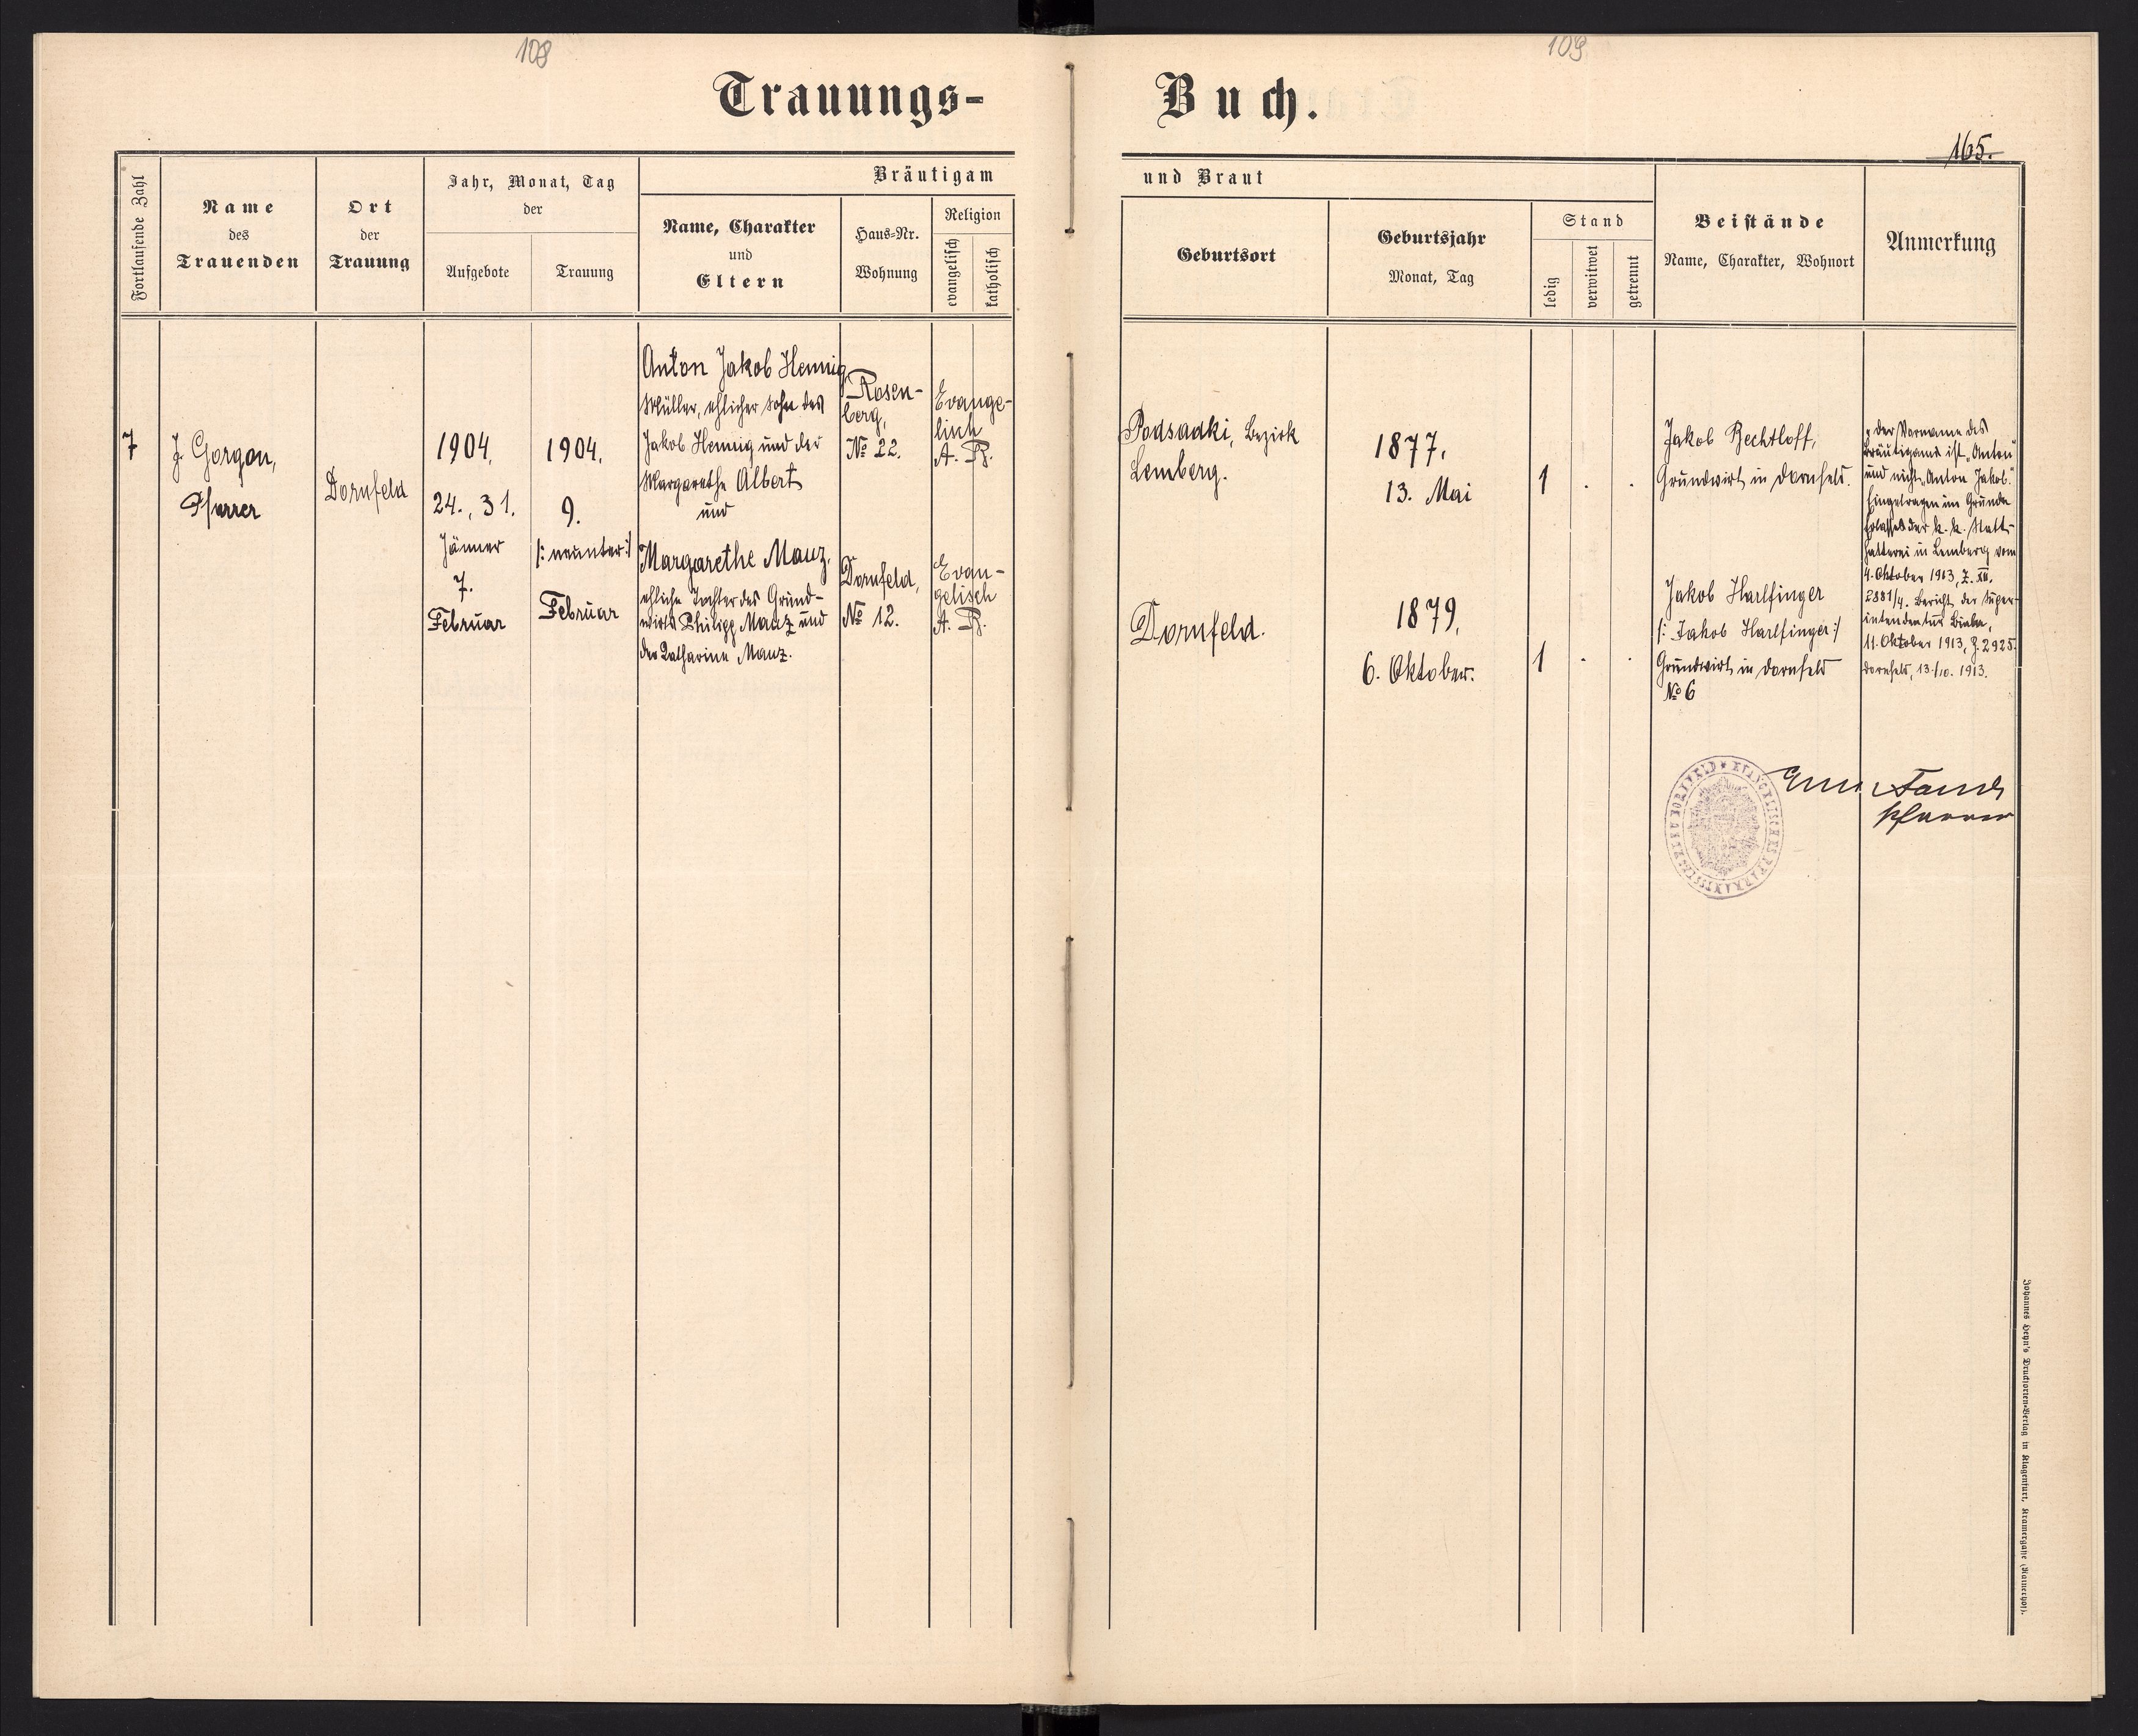 108
109
Trauungs-
Buch.
165.
Fortlaufende Zahl
Name
des
Trauenden
Ort
der
Trauung
Jahr, Monat, Tag
der
Aufgebote
Trauung
Bräutigam
Name, Charakter
und
Eltern
Haus-Nr.
Wohnung
Religion
evangelisch
katholisch
und Braut
Geburtsort
Geburtsjahr
Monat, Tag
Stand
ledig
verwitwet
getrennt
Beistände
Name, Charakter, Wohnort
Anmerkung
7
J. Gorgon,
Pfarrer
Dornfeld
1904.
24., 31.
Jänner
7.
Februar
1904.
9.
/: neunter :/
Februar
Anton Jakob Hennig
Müller, ehlicher Sohn des
Jakob Hennig und der
Margarethe Albert
und
Margarethe Mauz,
ehliche Tochter des Grund-
wirts Philipp Mauz und
der Katharina Mauz.
Rosen-
berg,
№ 22.
Dornfeld,
№ 12.
Evange-
lisch
A. B.
Evan-
gelisch
A. B.
Podsadki, Bezirk
Lemberg.
Dornfeld.
1877.
13. Mai
1879.
6. Oktober.
1 . .
1 . .
Jakob Bechtloff,
Grundwirt in Dornfeld.
Jakob Harlfinger
/: Jakob Harlfinger :/
Grundwirt in Dornfeld
№ 6
Der Vorname des
Bräutigams ist „Anton"
und nicht „Anton Jakob."
Eingetragen im Grunde
Erlasses der k. k. Statt-
halterei in Lemberg vom
4. Oktober 1913, Z. XII.
2881/4. Bericht der Super-
intendentur Biala,
11. Oktober 1913, Z. 2925.
Dornfeld, 13./10. 1913.
Pfarrer
EVANGELISCHES PFARRAMT DORNFELD
Johannes Heyn's Drucksorten-Verlag in Klagenfurt, Kramergasse (Rainerhof).